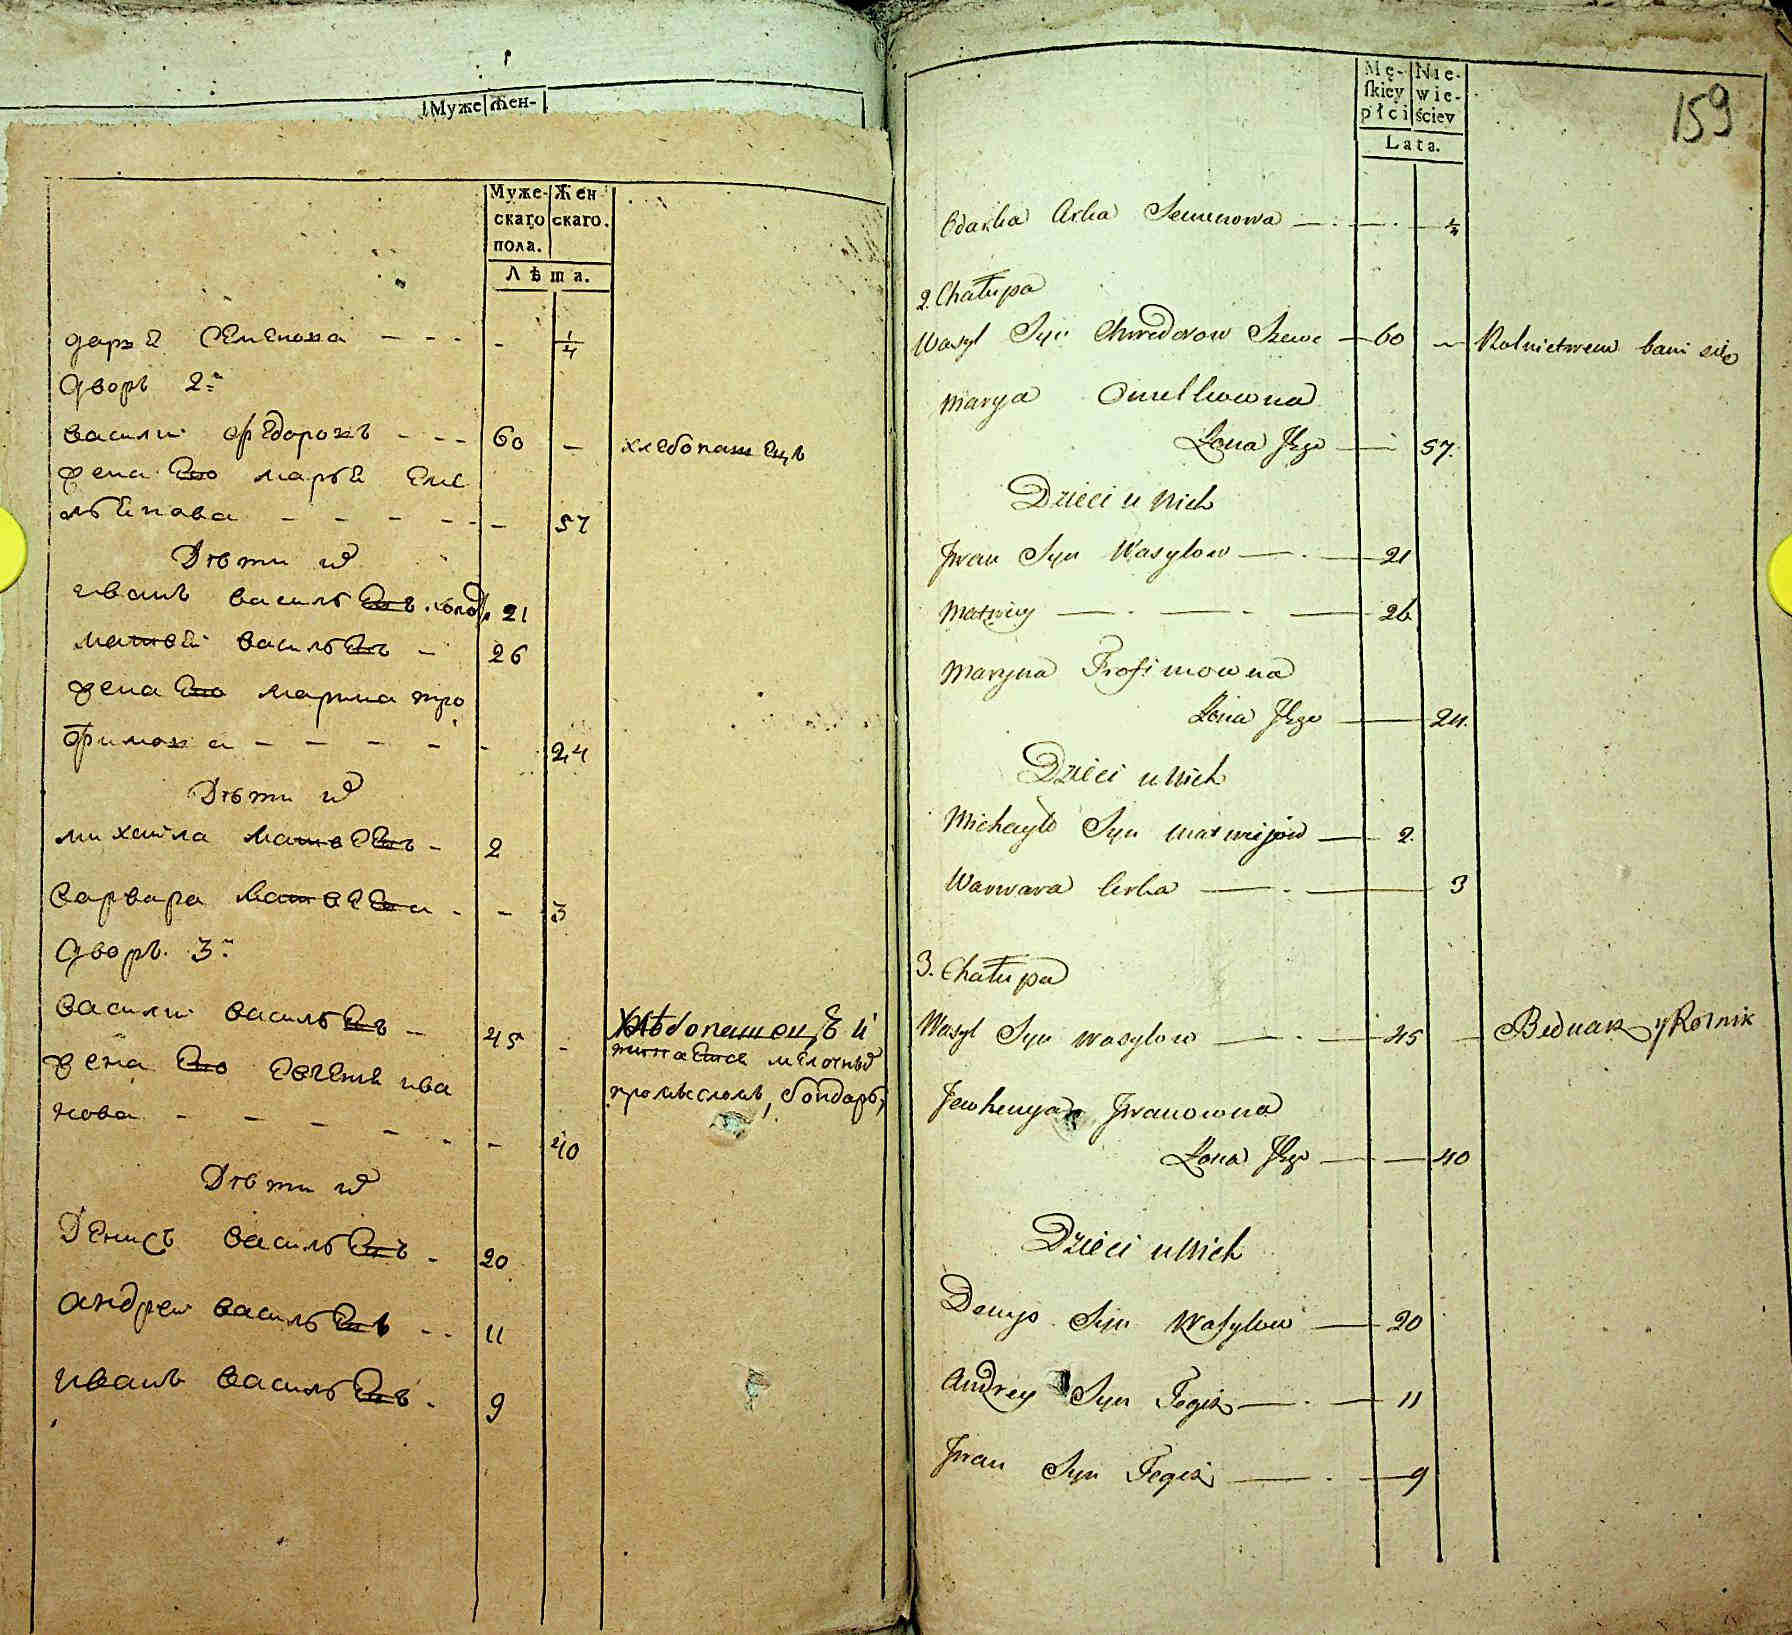 Муже Жен-
Муже- Жен
скаго скаго.
пола.
Лѣта.
дарья Семенова - - - - 1/4
дворъ 2й
василий федоровъ - - - 60 - хлебопашецъ
жена Ево марья Еме
льянова - - - - - - 57
Дѣти их
иванъ васильевъ холо 21
матвей васильевъ - 26
жена Ево марина тро
фимова - - - - - 24
Дѣти их
михайла матвеевъ - 2
варвара матвеева - - 3
дворъ 3й
василий васильевъ - 45 - Хлебопашецъ и
мелочный
жена Ево Евгения ива промысломъ, бондаръ,
нова - - - - - - 40
Дѣти их
Денисъ васильевъ - 20
андрей васильевъ - - 11
иванъ васильевъ - 9
Mę- Nie-
skiey wie-
płci ściey
Lata.
159
Odarka Corka Semenowa — · — · — 1/4
2. Chałupa
Wasyl Syn Chwedorow Szewc — 60 — Rolnictwem bawi się
Marya Omelkowna
Żona Jego — — 57.
Dzieci u Nich
Jwan Syn Wasylow — · — 21
Matwiey — · — · — 26
Maryna Trofimowna
Żona Jego — 24.
Dzieci u Nich
Michayło Syn Matwiejow — 2.
Warwara Corka — · — 3
3. Chałupa
Wasyl Syn Wasylow — · — 45 — Bednarz y Rolnik
Jewhenya Jwanowna
Żona Jego — — 40
Dzieci u Nich
Denys Syn Wasylow — 20
Andrey Syn Tegoż — · — 11
Jwan Syn Tegoż — · — 9